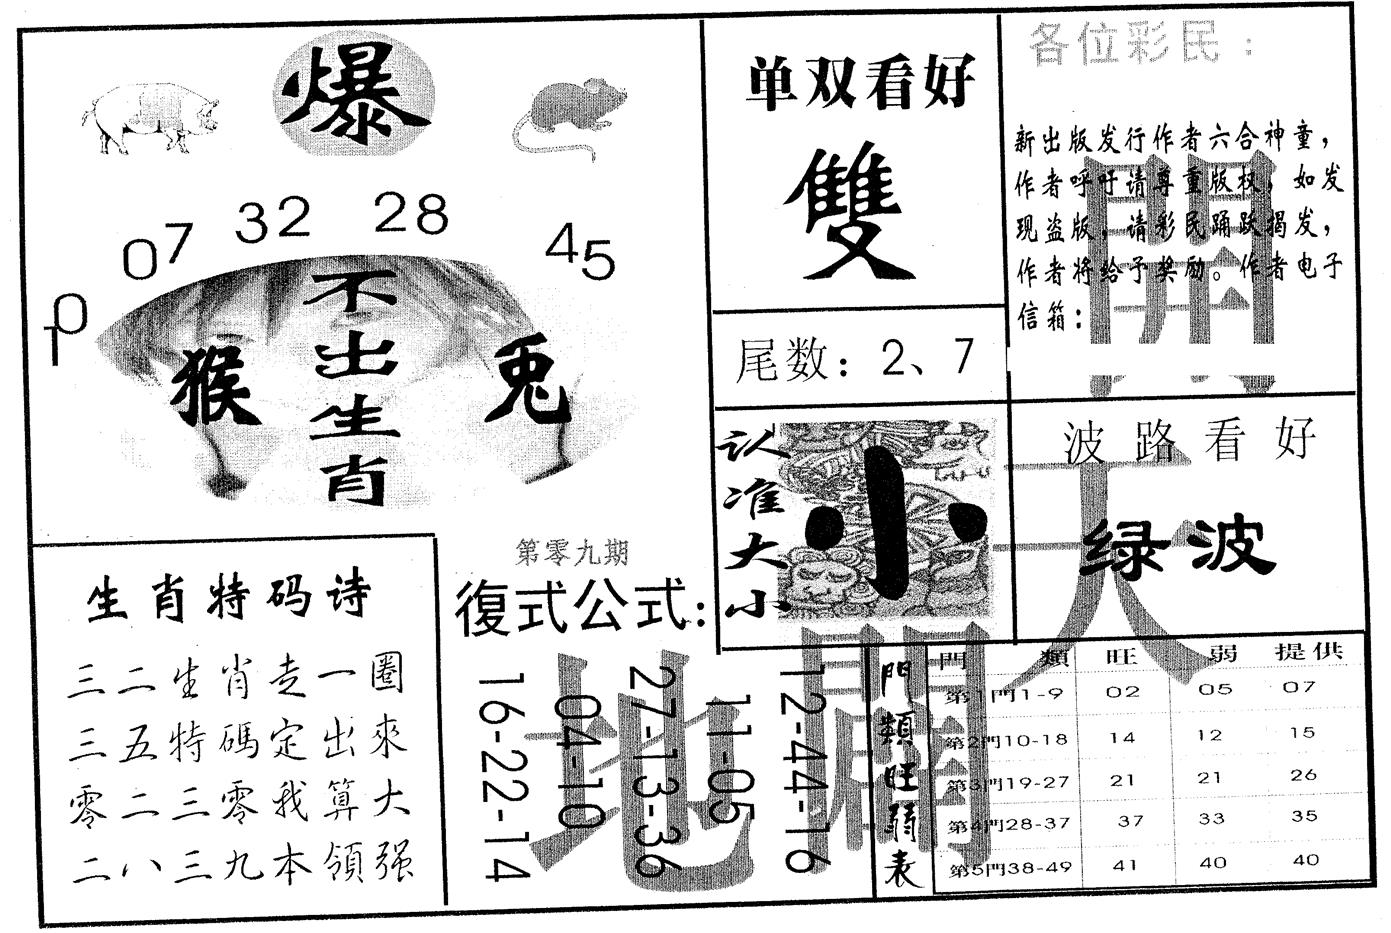 爆
10 07 32 28 45
不出生肖
猴
兔
单双看好
雙
尾数：2、7
各位彩民：
新出版发行作者六合神童，
作者呼吁请尊重版权，如发
现盗版，请彩民踊跃揭发，
作者将给予奖励。作者电子
信箱：
认准大小
小
波路看好
绿波
生肖特码诗
三二生肖走一圈
三五特碼定出來
零二三零我算大
二八三九本領强
第零九期
復式公式：
16-22-14
04-10
27-13-36
11-05
12-44-16
天
地
開
門類旺弱表
門類 旺 弱 提供
第1門1-9 02 05 07
第2門10-18 14 12 15
第3門19-27 21 21 26
第4門28-37 37 33 35
第5門38-49 41 40 40